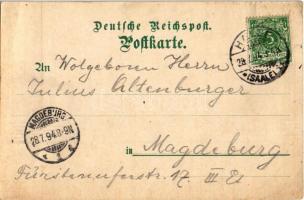 Deutsche Reichspost.
Postkarte.
An Wolgeboren Herrn
Julius Altenburger
in Magdeburg
Fürstenuferstr. 17. III
MAGDEBURG
28.7.94.8-9N.
(SAALE)